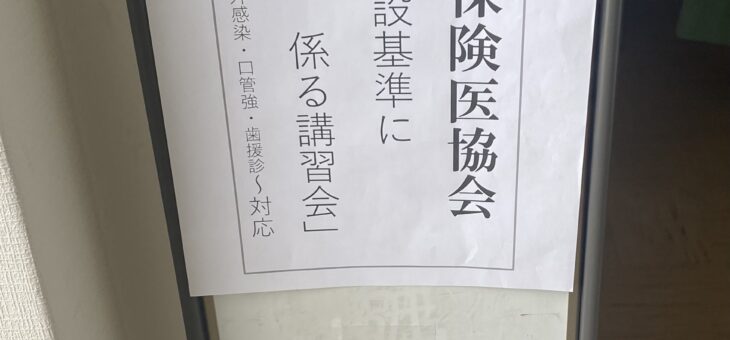 保険医協会
設基準に
係る講習会」
外感染・口管強・歯援診～対応